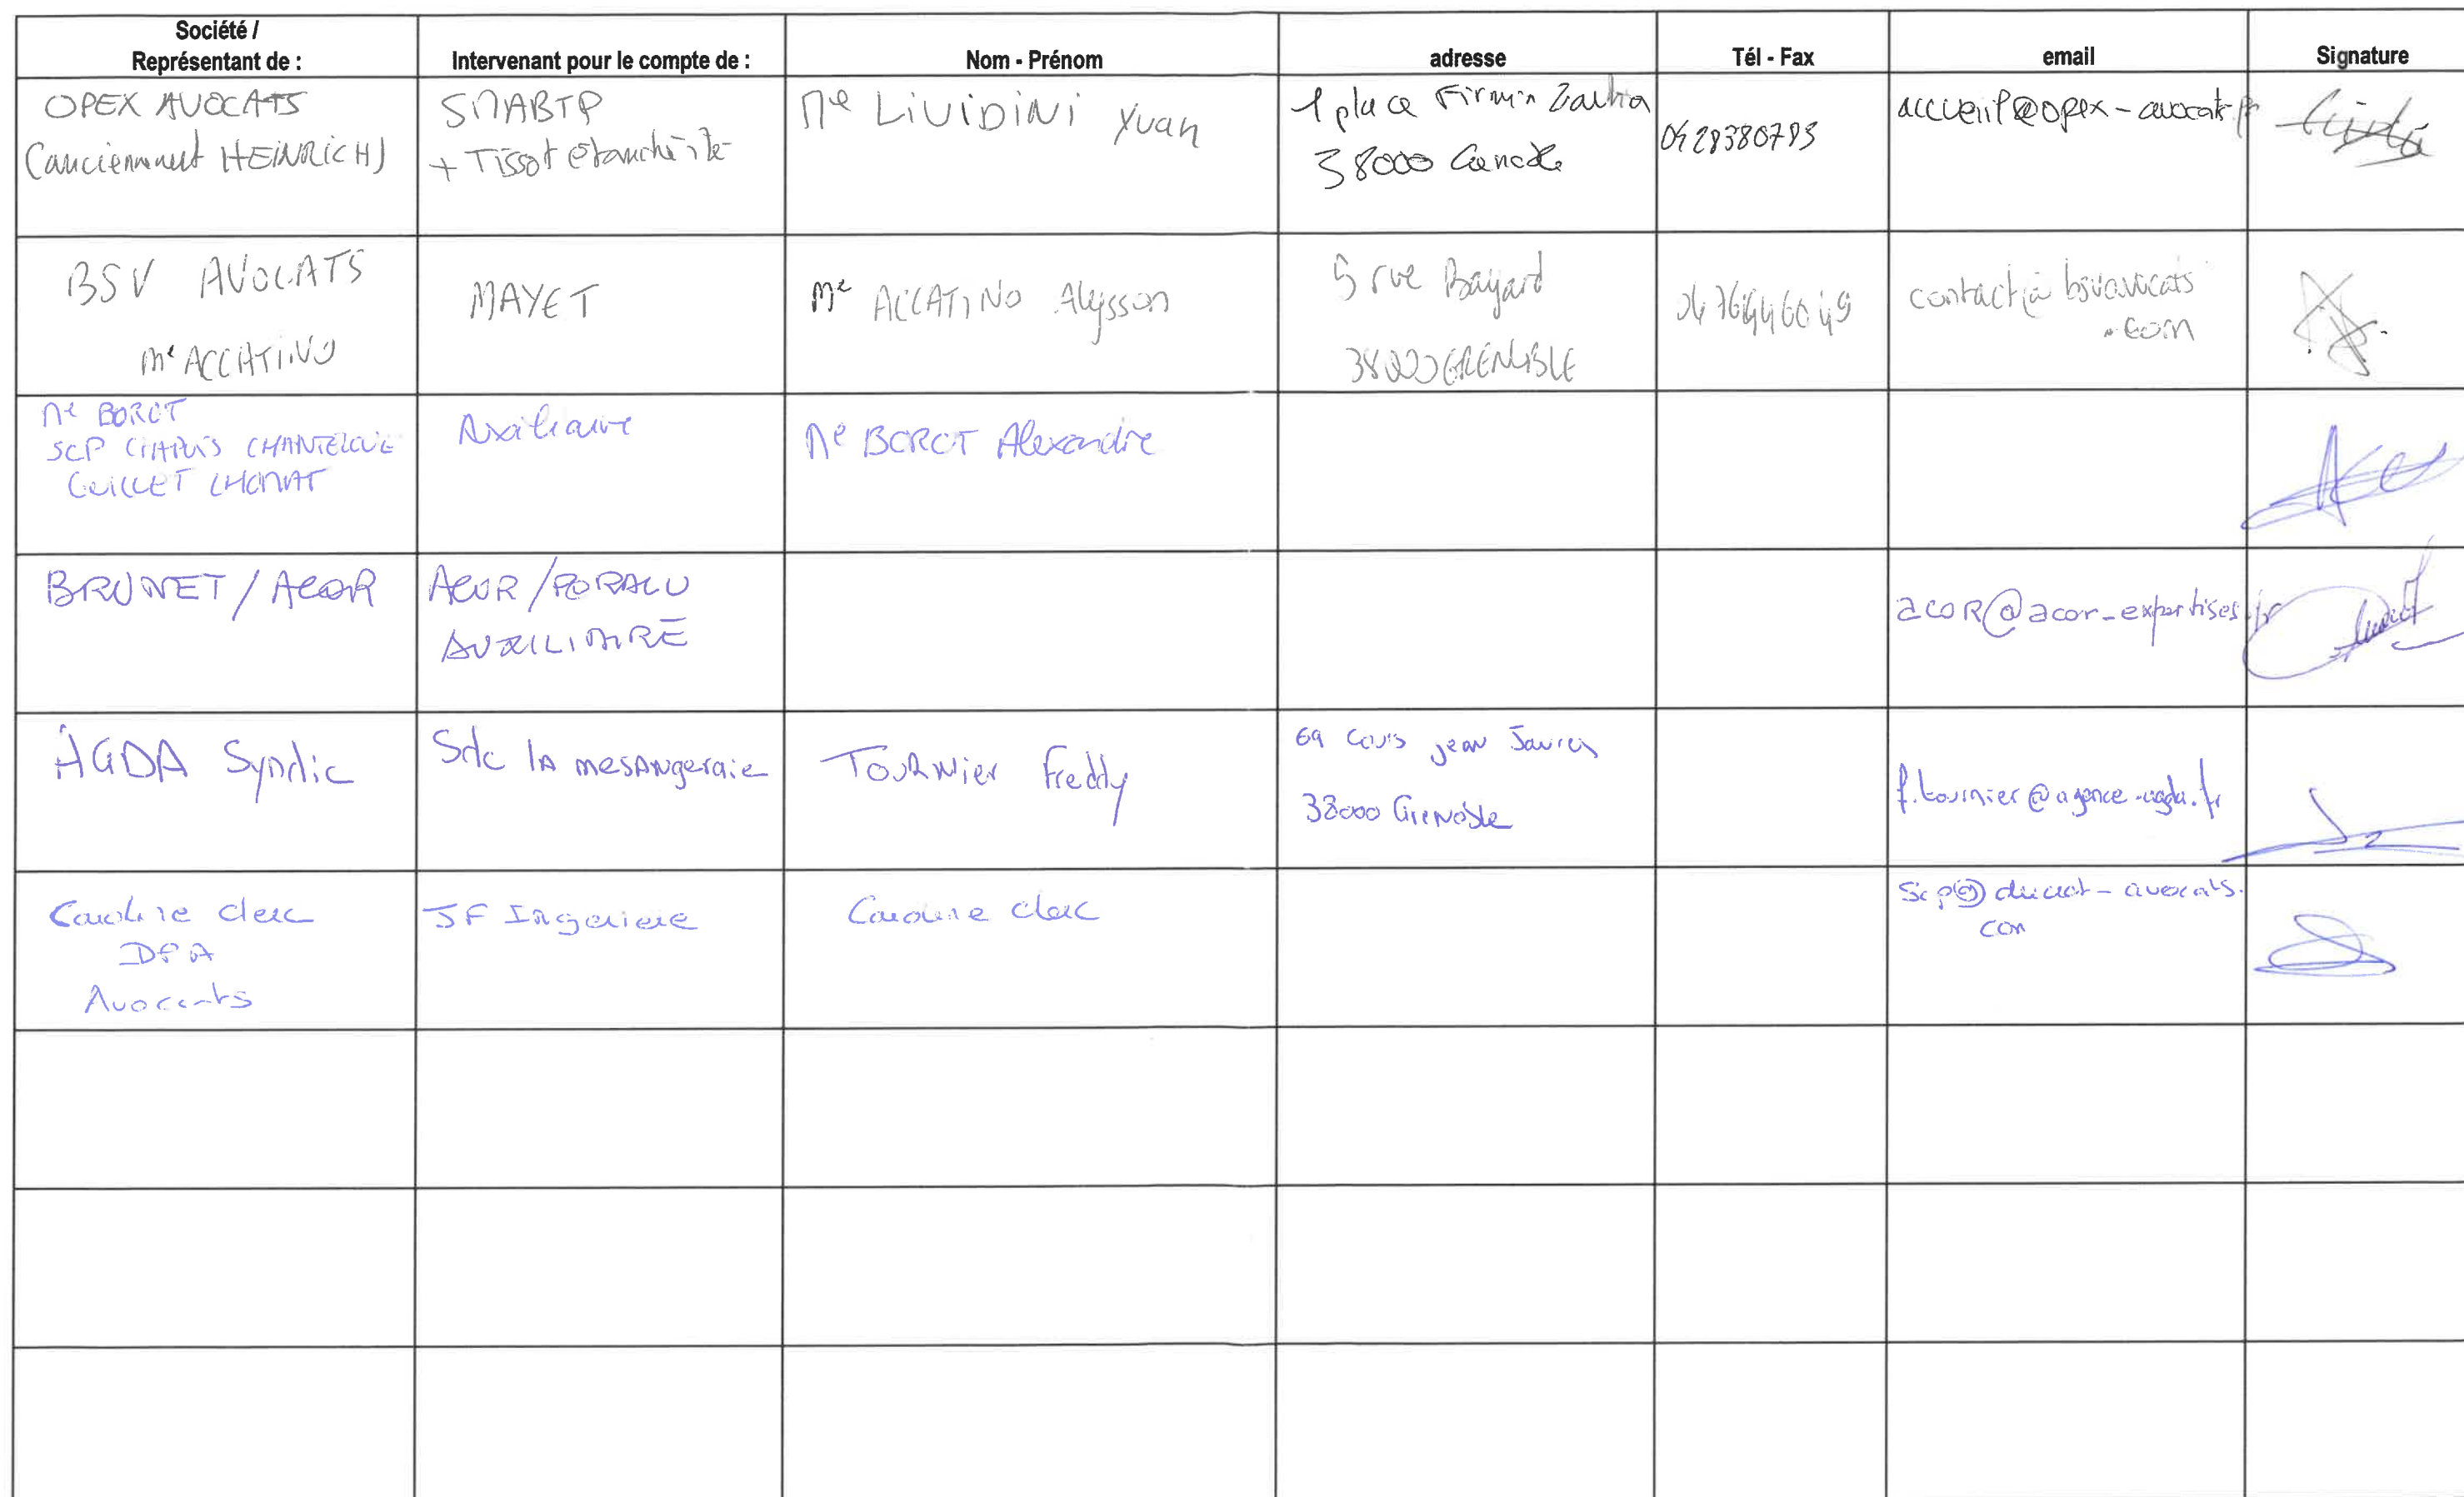 Société /
Représentant de :
Intervenant pour le compte de :
Nom - Prénom
adresse
Tél - Fax
email
Signature
OPEX AVOCATS
(anciennement HEINRICH)
SMABTP
+ Tissot étanchéité
Me LiViDiNi Yvan
1 place Firmin
38000
0428380793
accueil@opex-avocat.fr
BSV AVOCATS
Me ACCATINO
MAYET
Me ACCATINO Alysson
5 rue Bayard
38000 GRENOBLE
0476446049
contact@bsvavocats
.com
Me BOROT
SCP CHAPUIS CHANTELOVE
GUILLET LHOMAT
Auxiliaire
Me BOROT Alexandre
BRUNET / ACOR
ACOR / PORALU
AUXILIAIRE
acoR@acor-expertises.fr
AGDA Syndic
Sdc lA mesAngeraie
TouRNier Freddy
69 Cours jean Jaures
38000 GreNoble
f.tournier@agence-agda.fr
Caroline clerc
DPA
Avocats
JF Ingenierie
Caroline clerc
Scp@ducrot-avocats.
com